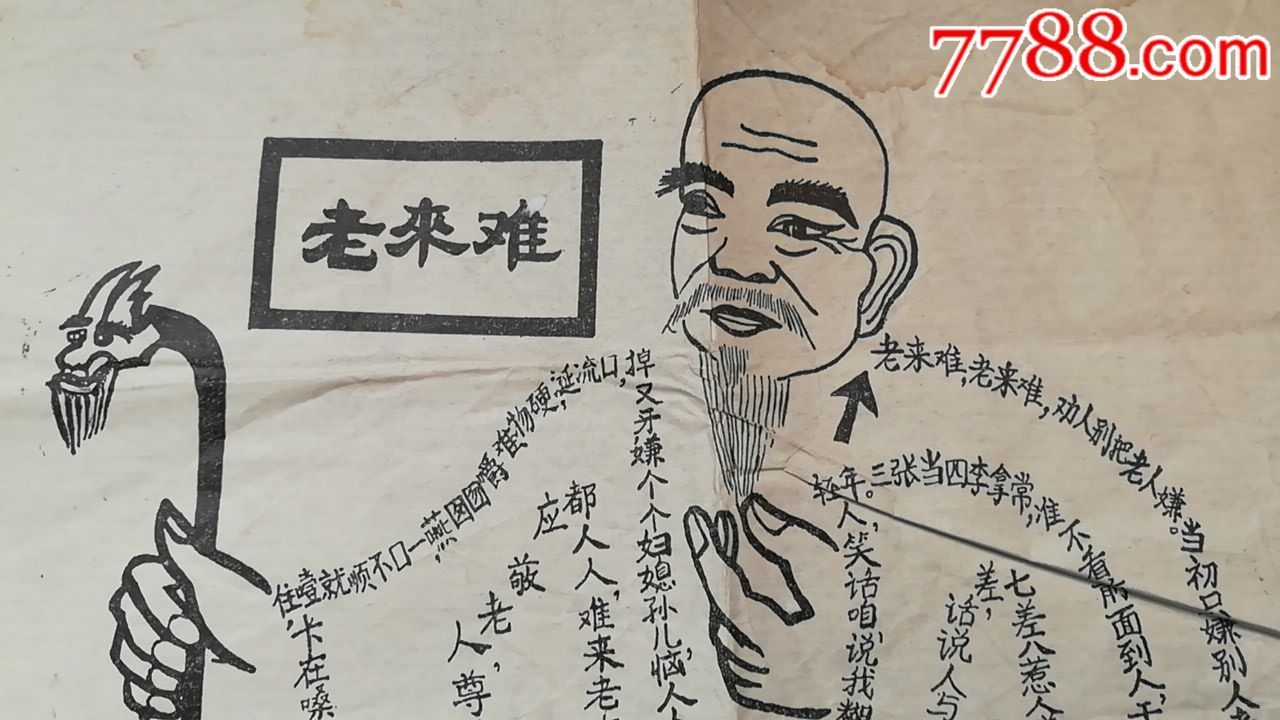 7788.com
老來难
老来难,老来难,劝人别把老人嫌。当初只嫌别人
人到面前看不准,常拿李四当张三。年轻人,笑话咱,说我糊
与人说话差,七差八惹人
人人恼,儿孙媳妇个个嫌,牙又掉,口流涎,硬物难嚼囫囵咽,一口不顺就噎住,卡在嗓
老来难,人人都应敬老人,尊